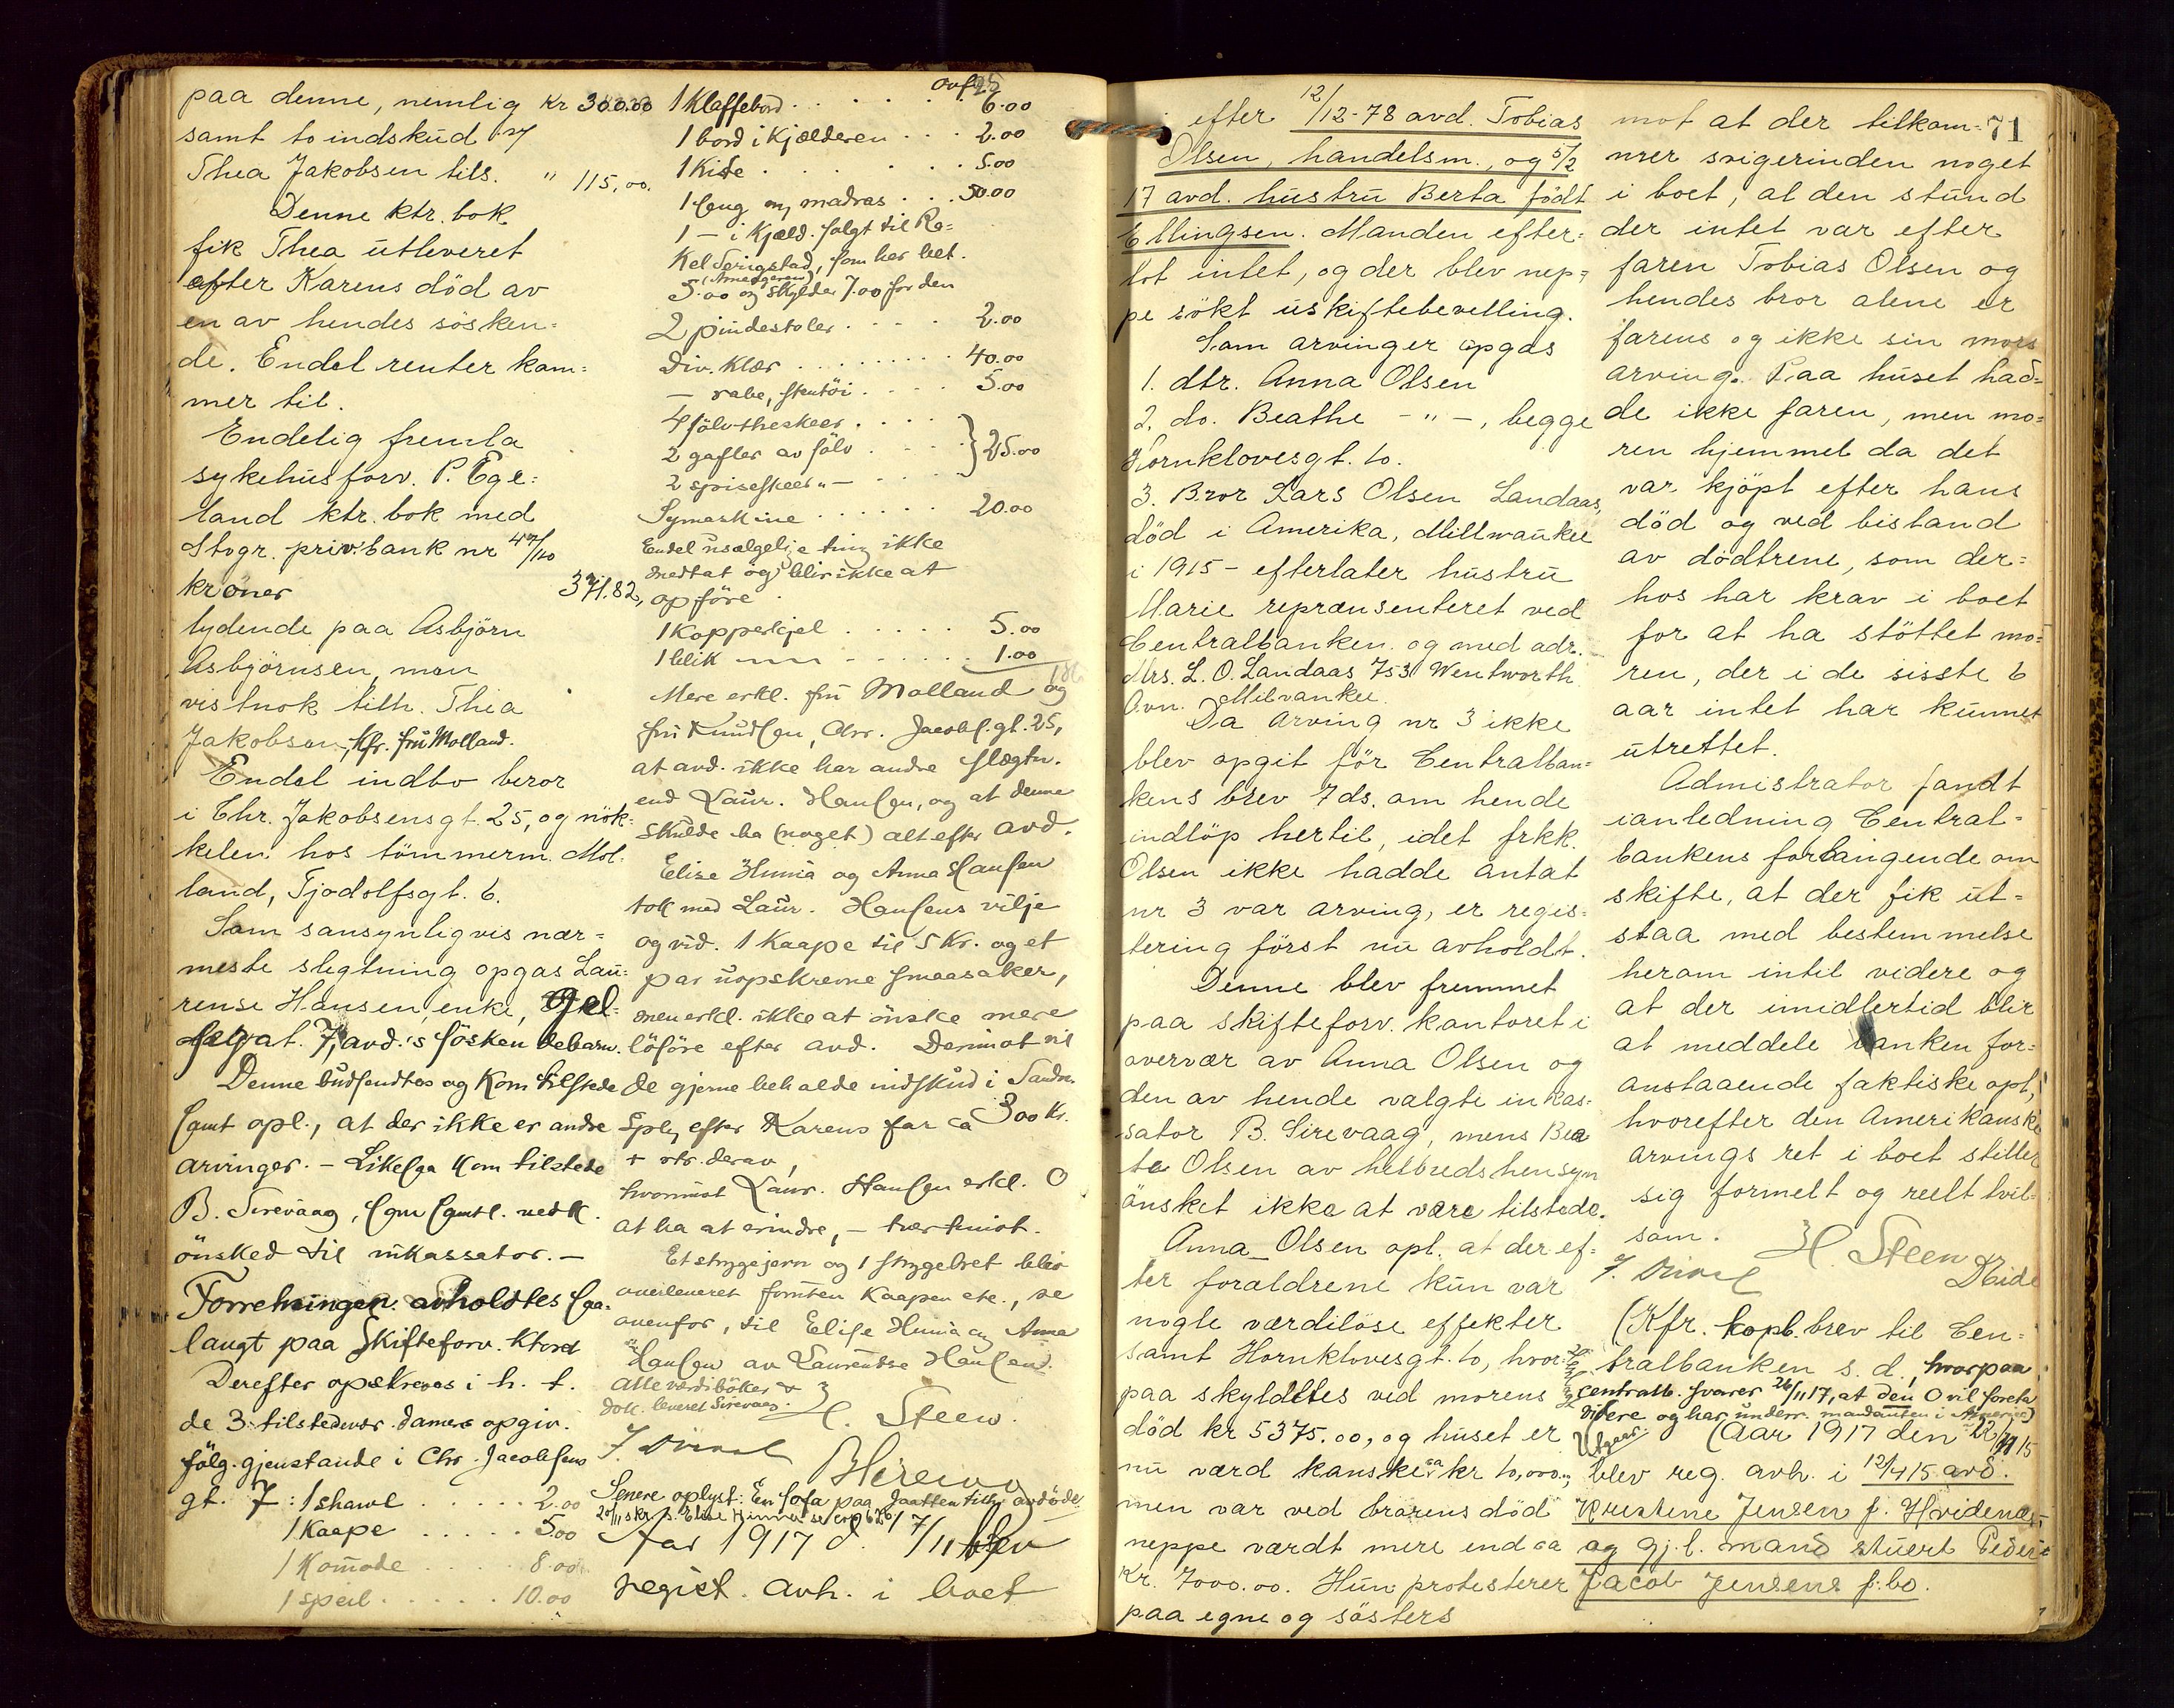 paa denne, nemlig kr 300.00
samt to indskud
Thea Jakobsen tils. " 115,00.
Denne ktr. bok
fik Thea utleveret
efter Karens død av
en av hendes søsken-
de. Endel renter kom-
mer til.
Endelig fremla
sykehusforv. P. Ege-
land ktr. bok med
Stvgr. privbank nr
kroner 371.82,
lydende paa Asbjörn
Asbjörnsen, men
vistnok tilh. Thea
Jakobsen, kfr. fru Molland.
Endel indbo beror
i Chr. Jakobsensgt. 25, og nök-
kelen hos tömmerm. Mol-
land, Tjodolfsgt. 6.
Som sansynligvis nær-
meste slegtning opgas Lau-
rense Hansen, enke,
7, avd.'s søskendebarn.
Denne budsendtes og kom tilstede
samt opl., at der ikke er andre
arvinger. - Likesaa kom tilstede
B. Sirevaag, som samtl. vedk.
önsked til inkassator. -
Forretningen avholdtes saa-
langt paa Skifteforv. ktoret
Derefter opskreves i h. t.
de 3 tilstedevær. damers opgiv.
fölg. gjenstande i Chr. Jacobsens
gt. 7: 1 shawl . . . . . 2.00
1 Kaape . . . . . 5.00
1 Komode . . . . 8.00
1 speil . . . . . 10.00
ovf. 25
1 Klaffebord . . . . . 6.00
1 bord i kjælderen . . . 2.00
1 Kiste . . . . . 5.00
1 seng m/ madras . . . 50.00
1 - i kjæld. solgt til Ra-
kel Serigstad, som har bet.
5.00 og skylder 7.00 for den
2 pindestoler . . . . 2.00
Div. klær . . . . . . 40.00
- , stentöi . . . . 5.00
4 sölv theskeer . . . .
2 gafler av sölv . . . } 25.00
2 spiseskeer " - . . .
Symaskine . . . . . . 20.00
Endel usælgelige ting ikke
medtat og blir ikke at
opföre
1 Kopperkjel . . . . . 5.00
1 blik . . . . . 1.00
Mere erkl. fru Molland og
fru Knudsen, Chr. Jacobs. gt. 25,
at avd. ikke har andre slægtn.
end Laur. Hansen, og at denne
skulde ha (noget) alt efter avd.
Elise Hinna og Anna Hansen
tok med Laur. Hansens vilje
og vid. 1 Kaape til 5 Kr. og et
par uopskrevne smaasaker,
men erkl. ikke at önske mere
lösöre efter avd. Derimot vil
de gjerne beholde indskud i Sandn.
Spb, efter Karens far ca 300 kr.
+ rtr. derav,
hvorimot Laur. Hansen erkl. 0
at ha at erindre, - tvertimot.
Et strygejern og 1 strygebret blev
overleveret foruten Kaapen etc., se
ovenfor, til Elise Hinna og Anna
Hansen av Laurentse Hansen.
Alle værdiböker &
dok. leveret Sirevaag.
H. Steen.
Senere oplyst: En sofa paa Jaatten tilh. avdöde
Aar 1917 d. 7/11 blev
regist. avh. i boet
71
efter 12/12-78 avd. Tobias
Olsen, handelsm., og 5/2
17 avd. hustru Berta født
Ellingsen. Manden efter-
lot intet, og der blev nep-
pe søkt uskiftebevilling.
Som arvinger opgas
1. dtr. Anna Olsen
2. do. Beathe - " -, begge
Hornklovesgt. 10.
3. Bror Lars Olsen Landaas,
död i Amerika, Millwaukee
i 1915 - efterlater hustru
Marie repræsenteret ved
Centralbanken og med adr.
Mrs. L. O. Landaas 753 Wentworth
Avn. Milvaukee.
Da arving nr 3 ikke
blev opgit för Centralban-
kens brev 7 ds. om hende
indlöp hertil, idet frkk.
Olsen ikke hadde antat
nr 3 var arving, er regis-
tering først nu avholdt.
Denne blev fremmet
paa skifteforv. kontoret i
overvær av Anna Olsen og
den av hende valgte inkas-
sator B. Sirevaag, mens Bea
te Olsen av helbredshensyn
önsket ikke at være tilstede.
Anna Olsen opl. at der ef-
ter foraldrene kun var
nogle værdilöse effekter
samt Hornklovesgt. 10, hvor-
paa skyldtes ved morens
død kr 5375.00, og huset er
nu værd kanske ca kr 10,000.,
men var ved brorens död
neppe værdt mere end ca
kr. 7000.00. Hun protesterer
paa egne og søsters
mot at der tilkom-
mer svigerinden noget
i boet, al den stund
der intet var efter
faren Tobias Olsen og
hendes bror alene er
farens og ikke sin mors
arving. Paa huset had-
de ikke faren, men mo-
ren hjemmel da det
var kjöpt efter hans
död og ved bistand
av dödtrene, som der-
hos har krav i boet
for at ha stöttet mo-
ren, der i de sisste 6
aar intet har kunnet
utrettet.
Admistrator fandt
ianledning Central-
bankens forlangende om
skifte, at der fik ut-
staa med bestemmelse
herom intil videre og
at der imidlertid blir
at meddele banken for-
anstaaende faktiske opl.,
hvorefter den Amerikanske
arvings ret i boet stiller
sig formelt og reelt tvil-
som.
H. Steen
(Kfr. kopb. brev til Cen-
tralbanken s. d., hvorpaa
centralb. svarer 26/11 17, at den 0 vil foreta
videre og har underr. mandanten i Amerika)
Utgaar.
(Aar 1917 den 22/11 15
blev reg. avh. i 12/4 15 avd.
Kristine Jensen f. Hvidenæs,
og gj.l. mand stuert Peder
Jacob Jensens f.bo.